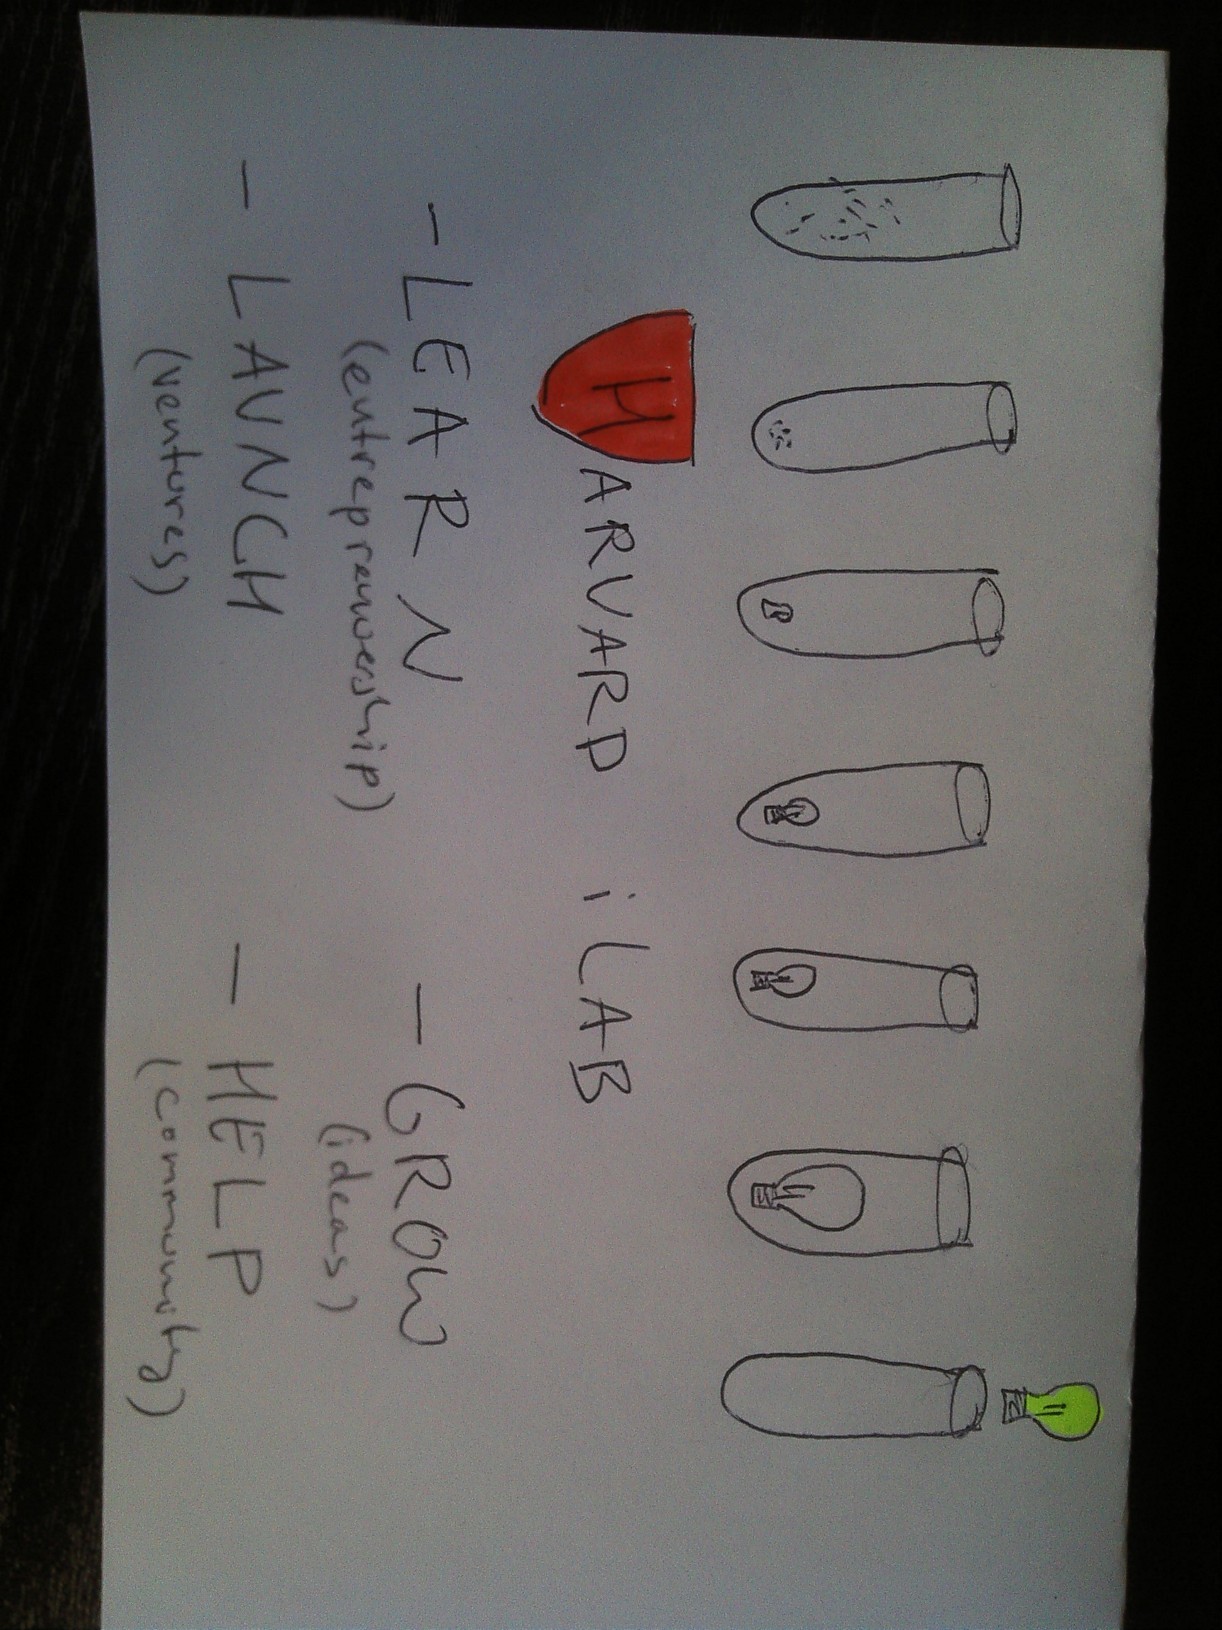 HARVARD iLAB
- LEARN - GROW
(entreprenuership) (ideas)
- LAUNCH - HELP
(ventures) (community)